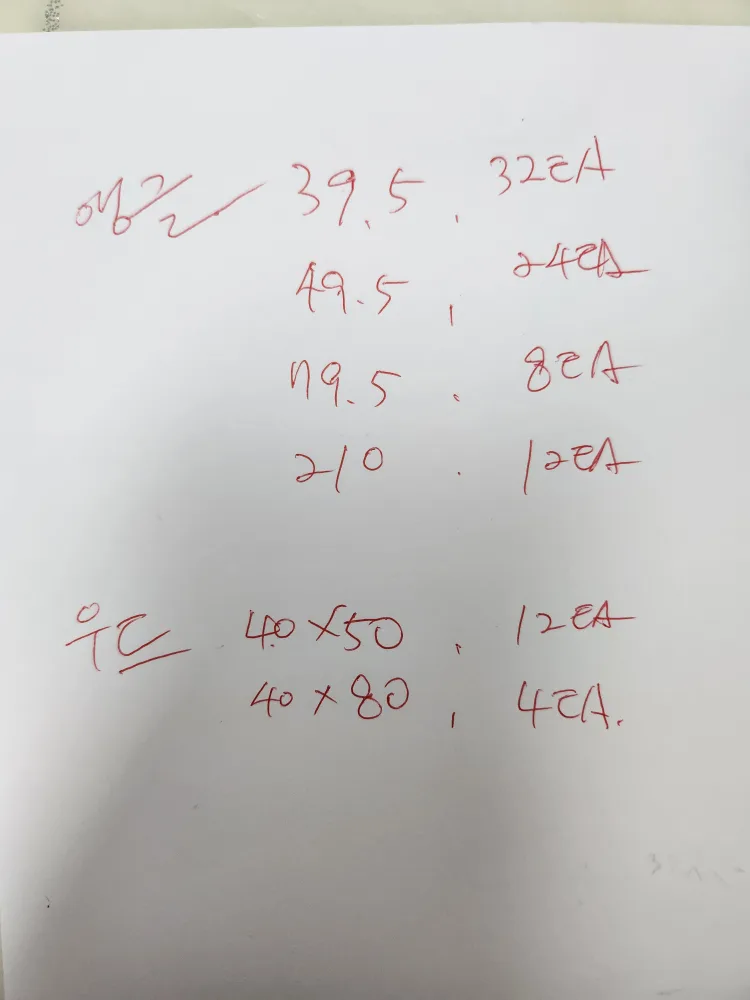 앵글 39.5, 32EA
49.5, 24EA
79.5. 8EA
210. 12EA
우드 40×50, 12EA
40×80, 4EA.